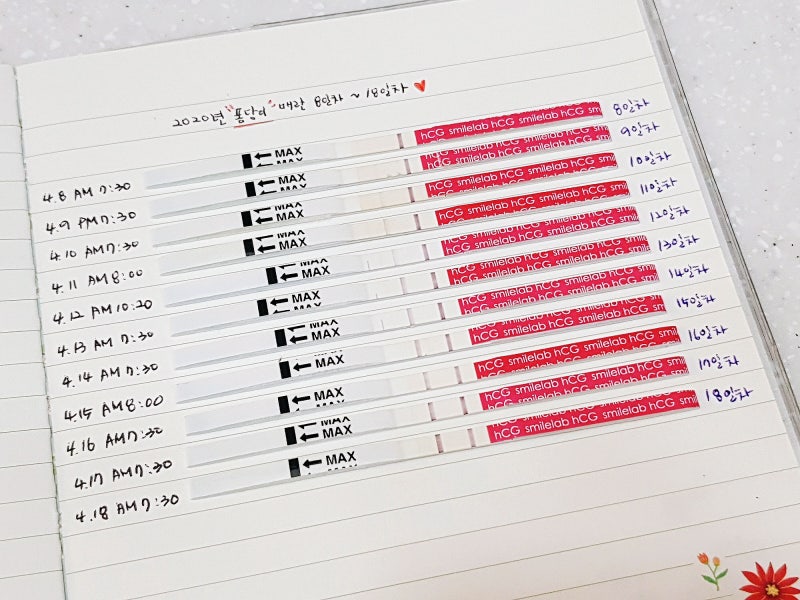 2020년 "퐁당이" 배란 8일차 ~ 18일차
4.8 AM 7:30 MAX hCG smilelab hCG smilelab hCG 8일차
4.9 PM 7:30 MAX hCG smilelab hCG smilelab hCG 9일차
4.10 AM 7:30 MAX hCG smilelab hCG smilelab hCG 10일차
4.11 AM 8:00 MAX hCG smilelab hCG smilelab hCG 11일차
4.12 AM 10:20 MAX hCG smilelab hCG smilelab hCG 12일차
4.13 AM 7:30 MAX hCG smilelab hCG smilelab hCG 13일차
4.14 AM 7:30 MAX hCG smilelab hCG smilelab hCG 14일차
4.15 AM 8:00 MAX hCG smilelab hCG smilelab hCG 15일차
4.16 AM 7:30 MAX hCG smilelab hCG smilelab hCG 16일차
4.17 AM 7:30 MAX hCG smilelab hCG smilelab hCG 17일차
4.18 AM 7:30 MAX hCG smilelab hCG smilelab hCG 18일차